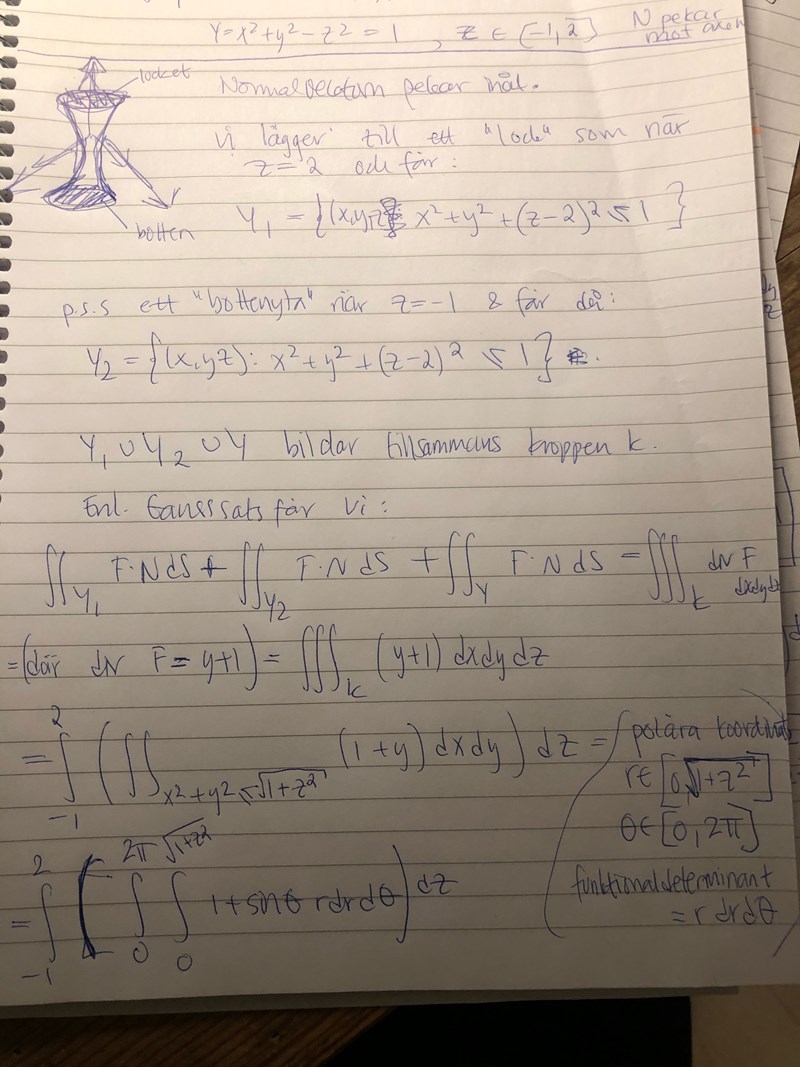 Y = x² + y² - z² = 1 , z ∈ (-1, 2] N pekar mot axeln
locket
Normalvektorn pekar inåt.
Vi lägger till ett "lock" som när
z = 2 och får:
Y₁ = {(x,y,z): x² + y² + (z-2)² ≤ 1}
botten
p.s.s ett "bottenyta" när z = -1 & får då:
Y₂ = {(x,yz): x² + y² + (z-2)² ≤ 1}.
Y₁ ∪ Y₂ ∪ Y bildar tillsammans kroppen K.
Enl. Gauss sats får vi:
∬_Y₁ F·N dS + ∬_Y₂ F·N dS + ∬_Y F·N dS = ∭_K div F dxdydz
= (där div F = y+1) = ∭_K (y+1) dxdydz
= ∫_{-1}^{2} (∬_{x²+y² ≤ √(1+z²)} (1+y) dxdy) dz = (polära koordinater
r ∈ [0, √(1+z²)]
θ ∈ [0, 2π]
funktionaldeterminant
= r dr dθ)
= ∫_{-1}^{2} [∫_0^{2π} ∫_0^{√(1+z²)} 1 + sinθ r dr dθ) dz